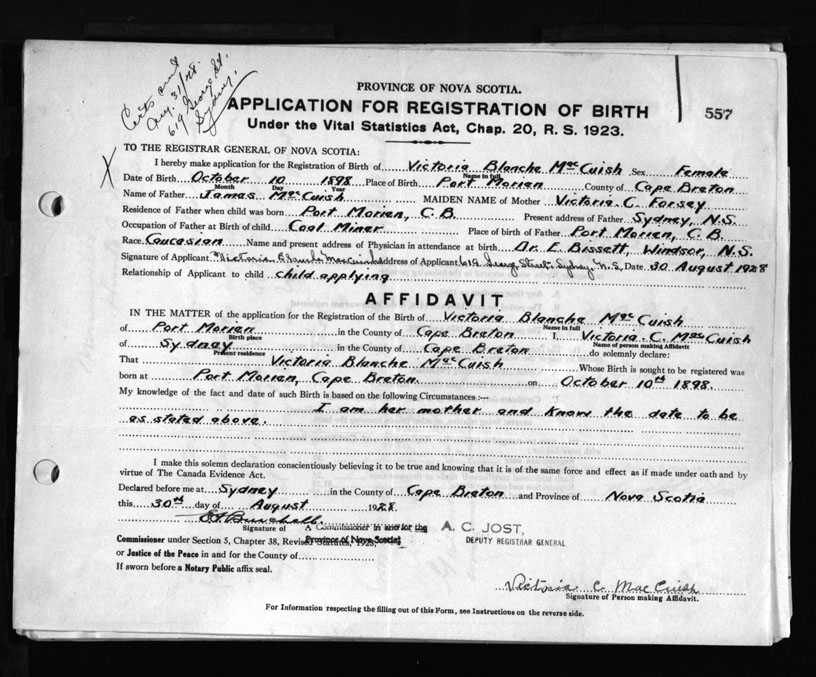 Certs sent
Aug. 31/28.
619 George St.
Sydney.
PROVINCE OF NOVA SCOTIA.
APPLICATION FOR REGISTRATION OF BIRTH
557
Under the Vital Statistics Act, Chap. 20, R. S. 1923.
TO THE REGISTRAR GENERAL OF NOVA SCOTIA:
X
I hereby make application for the Registration of Birth of Victoria Blanche MacCuish Sex Female
Name in full
Date of Birth October 10 1898 Place of Birth Port Morien County of Cape Breton
Month Day Year
Name of Father James MacCuish MAIDEN NAME of Mother Victoria C. Forsey
Residence of Father when child was born Port Morien, C. B. Present address of Father Sydney, N.S.
Occupation of Father at Birth of child Coal Miner Place of birth of Father Port Morien, C. B.
Race Caucasian Name and present address of Physician in attendance at birth Dr. E. Bissett, Windsor, N. S.
Signature of Applicant "Victoria Blanche MacCuish Address of Applicant 619 George Street, Sydney, N.S. Date 30 August 1928
Relationship of Applicant to child child applying
AFFIDAVIT
IN THE MATTER of the application for the Registration of the Birth of Victoria Blanche MacCuish
Name in full
of Port Morien in the County of Cape Breton I, Victoria C. MacCuish
Birth place Name of person making Affidavit
of Sydney in the County of Cape Breton do solemnly declare:
Present residence
That Victoria Blanche MacCuish Whose Birth is sought to be registered was
born at Port Morien, Cape Breton on October 10th 1898.
My knowledge of the fact and date of such Birth is based on the following Circumstances :—
I am her mother and know the date to be
as stated above.
I make this solemn declaration conscientiously believing it to be true and knowing that it is of the same force and effect as if made under oath and by
virtue of The Canada Evidence Act.
Declared before me at Sydney in the County of Cape Breton and Province of Nova Scotia
this 30th day of August 1928
Signature of A Commissioner in and for the
Province of Nova Scotia
A. C. JOST,
DEPUTY REGISTRAR GENERAL
Commissioner under Section 5, Chapter 38, Revised Statutes, 1923,
or Justice of the Peace in and for the County of
If sworn before a Notary Public affix seal.
Victoria C. MacCuish
Signature of Person making Affidavit.
For Information respecting the filling out of this Form, see Instructions on the reverse side.